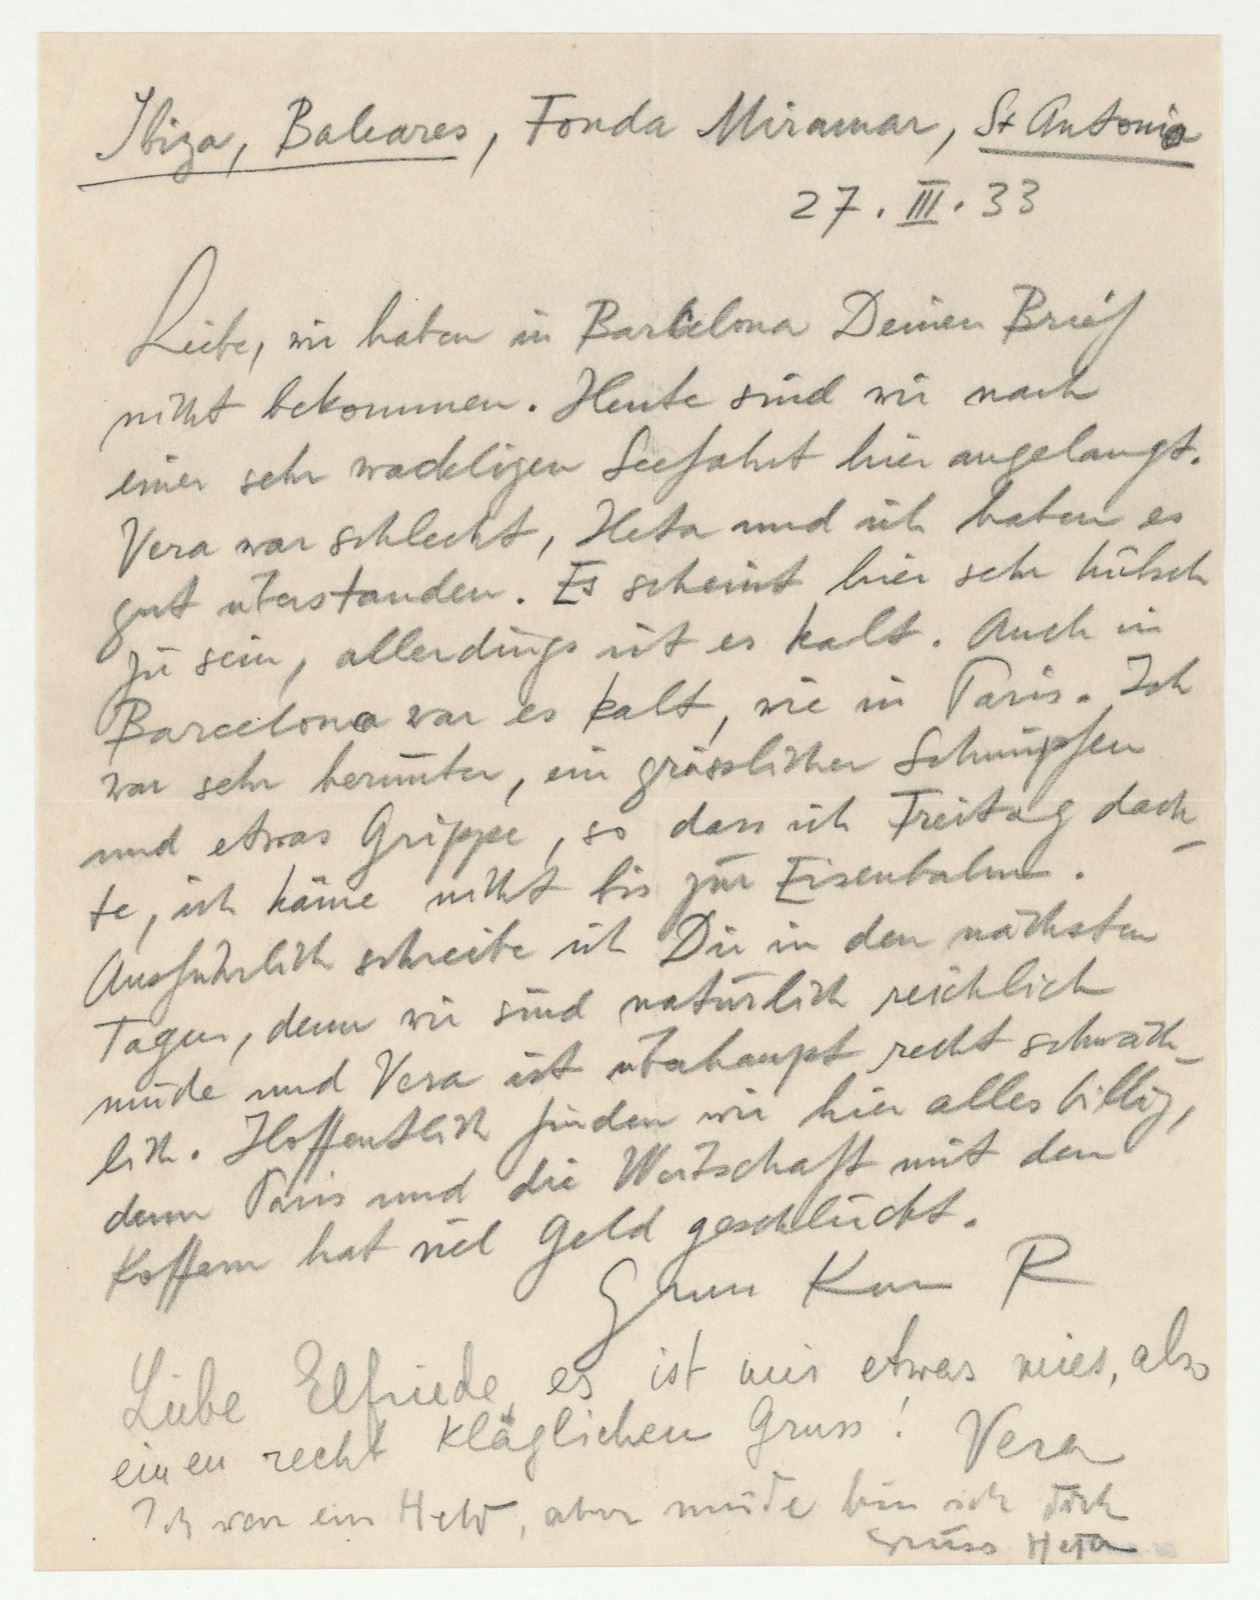 Ibiza, Baleares, Fonda Miramar, St Antonio
27. III. 33
Liebe, wir haben in Barcelona Deinen Brief
nicht bekommen. Heute sind wir nach
einer sehr wackligen Seefahrt hier angelangt.
Vera war schlecht, Heta und ich haben es
gut überstanden. Es scheint hier sehr hübsch
zu sein, allerdings ist es kalt. Auch in
Barcelona war es kalt, wie in Paris. Ich
war sehr herunter, ein grässlicher Schnupfen
und etwas Grippe, so dass ich Freitag dach-
te, ich käme nicht bis zur Eisenbahn.
Ausführlich schreibe ich Dir in den nächsten
Tagen, denn wir sind natürlich reichlich
müde und Vera ist überhaupt recht schwäch-
lich. Hoffentlich finden wir hier alles billig,
denn Paris und die Wirtschaft mit den
Koffern hat viel Geld geschluckt.
Gruss Kuss R
Liebe Elfriede, es ist mir etwas mies, also
einen recht kläglichen Gruss! Vera
Ich war ein Held, aber müde bin ich doch
Gruss Heta